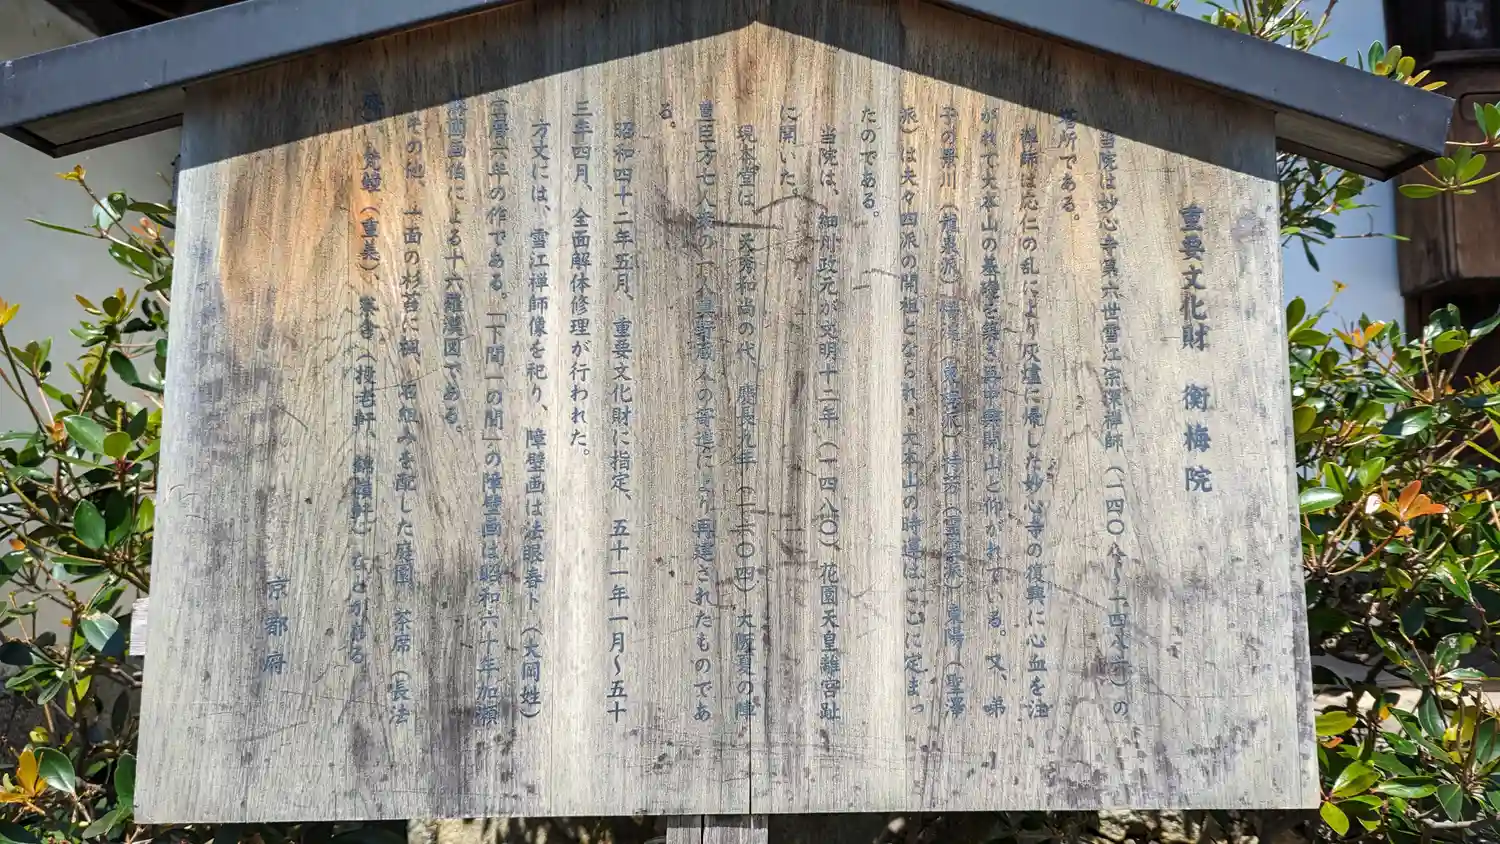 重要文化財 衡梅院
当院は妙心寺第六世雪江宗深禅師（一四〇八～一四八六）の
塔所である。
禅師は応仁の乱により灰燼に帰した妙心寺の復興に心血を注
がれて大本山の基礎を築き再中興開山と仰がれている。又、弟
子の景川（龍泉派）悟渓（東海派）特芳（霊雲派）東陽（聖澤
派）は夫々四派の開祖となられ、大本山の時運はここに定まっ
たのである。
当院は、細川政元が文明十二年（一四八〇）、花園天皇離宮趾
に開いた。
現本堂は、天秀和尚の代、慶長九年（一六〇四）大阪夏の陣
豊臣方七人衆の一人真野蔵人の寄進により再建されたものであ
る。
昭和四十二年五月、重要文化財に指定、五十一年一月～五十
三年四月、全面解体修理が行われた。
方丈には、雪江禅師像を祀り、障壁画は法眼春卜（大岡姓）
宝暦六年の作である。「下間一の間」の障壁画は昭和六十年加瀬
藤圃画伯による十六羅漢図である。
その他、一面の杉苔に楓、石組みを配した庭園、茶席（長法
庵）、梵鐘（重美）、寮舎（授老軒、錦嶺軒）などが在る。
京都府